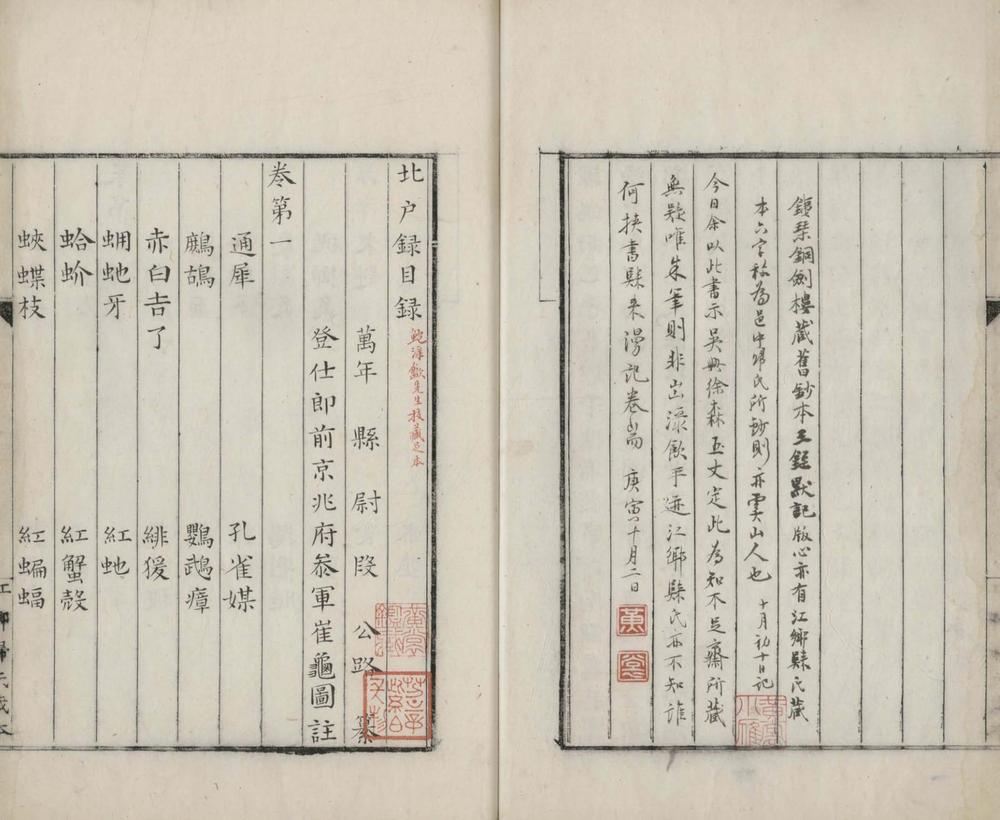 鐵琴銅劍樓藏舊鈔本王銍默記版心亦有江鄉歸氏藏
本六字疑為邑中歸氏所鈔則亦虞山人也 十月初十日記
今日余以此書示吳興徐森玉丈定此為知不足齋所藏
無疑唯朱筆則非出淥飲手迹江鄉歸氏亦不知誰
何挾書歸來漫記卷耑 庚寅十月二日
黃裳
北户録目録
鮑淥飲先生校藏足本
萬年縣尉段 公路 纂
登仕郎前京兆府叅軍崔龜圖註
卷第一
通犀 孔雀媒
鷓鴣 鸚鵡瘴
赤白吉了 緋猨
蚺虵牙 紅虵
蛤蚧 紅蟹殼
蛺蝶枝 紅蝙蝠